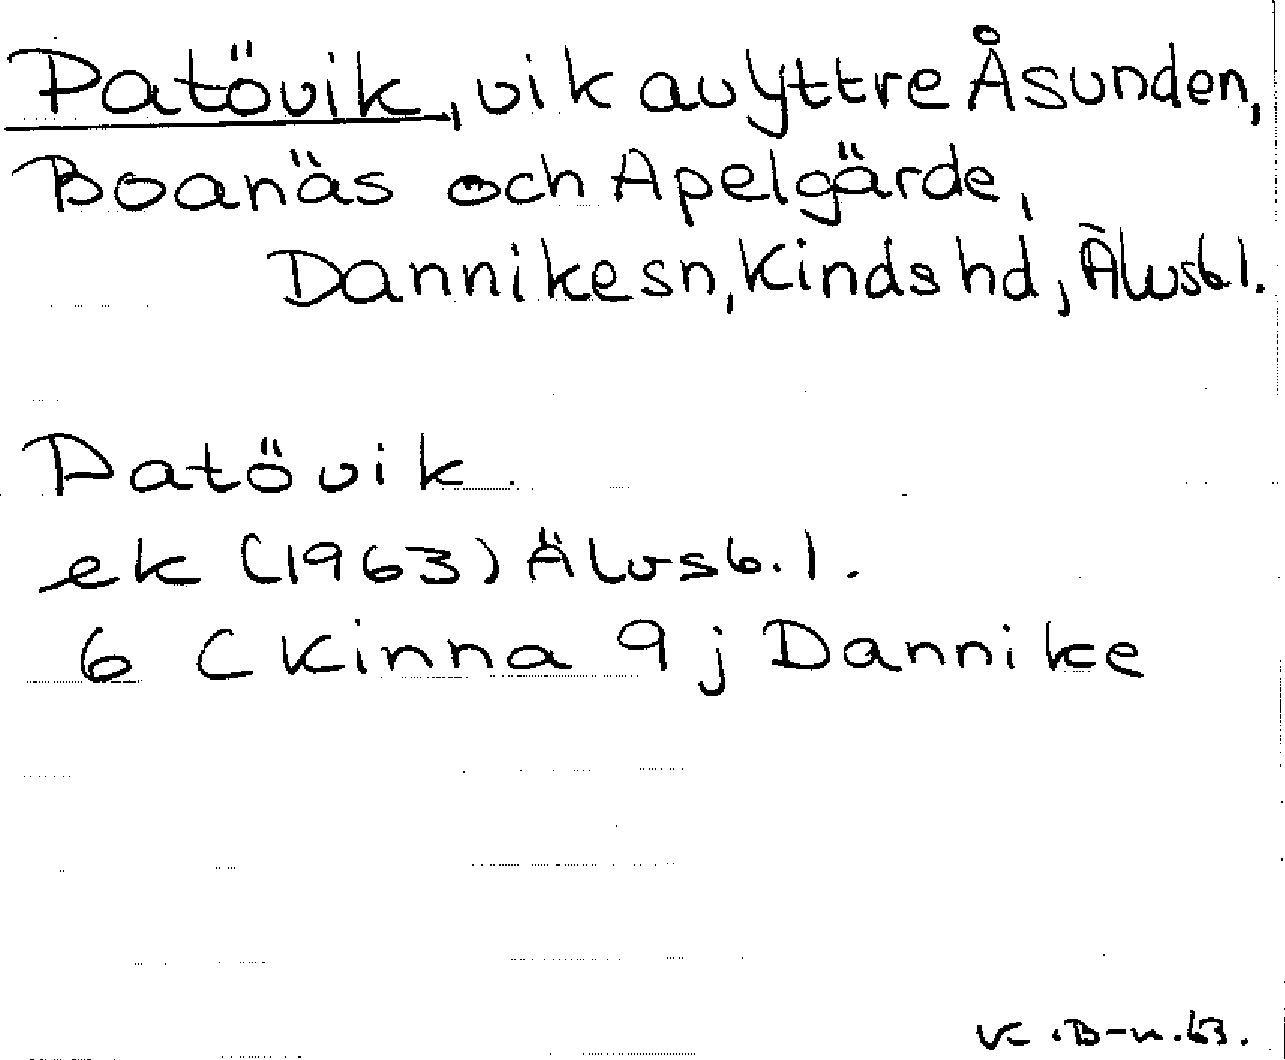 Patövik, vik av Yttre Åsunden,
Boanäs och Apelgärde,
Dannike sn, Kinds hd, Älvsb.l.
Patövik
ek (1963) Älvsb.l.
6 C Kinna 9 j Dannike
K.B-n.63.